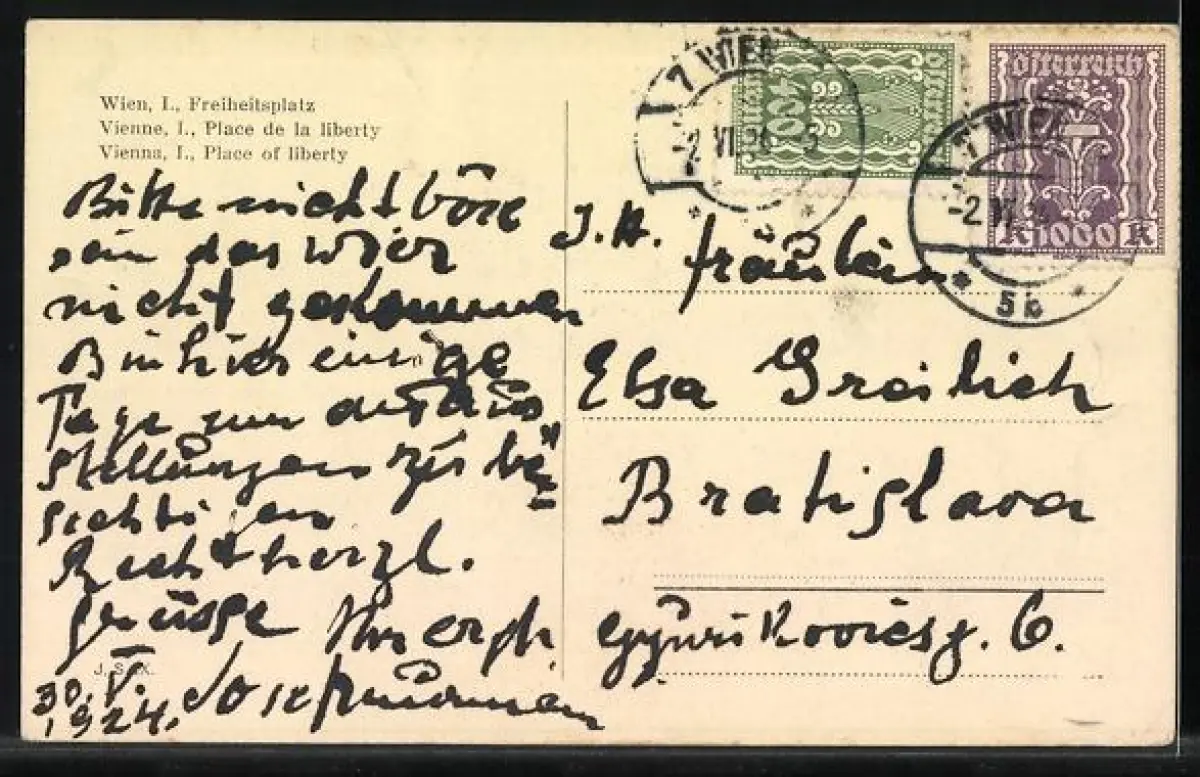 Wien, I., Freiheitsplatz
Vienne, I., Place de la liberty
Vienna, I., Place of liberty
Bitte nicht böse
sein das wier
nicht gekommen
Bin hier einige
Tage um
stellungen zu be=
sichtigen
Recht herzl.
grüsse Ihr ergb.
Josef
30. V.
1924.
J. S. K.
7 WIEN
-2. VI. 24
400
Österreich
7 WIEN
-2. VI
5b
Österreich
K 1000 K
I. H. Fräulein
Elsa Greilich
Bratislava
6.